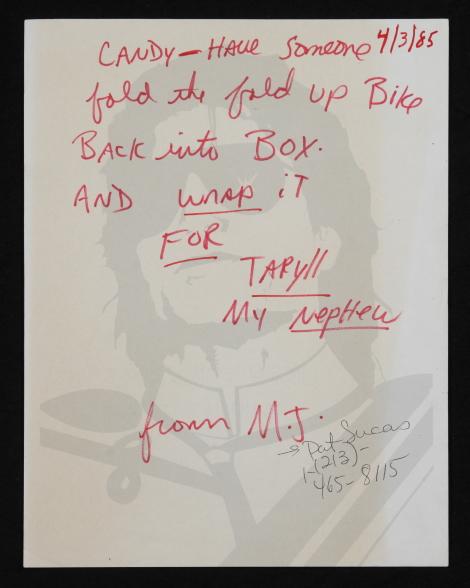 CANDY - HAVE Someone 4/3/85
fold the fold up Bike
BACK into BOX.
AND WRAP iT
FOR
TARYll
My NepHew
from M.J.
→ Pat Lucas
1-(213)-
465-8115